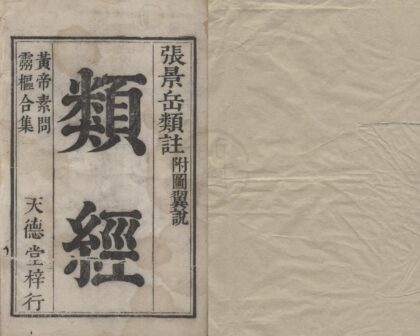 張景岳類註附圖翼說
類經
黃帝素問
靈樞合集
天德堂梓行